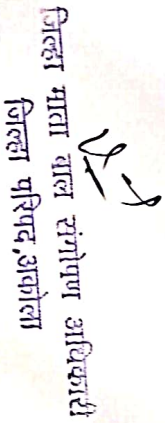 जिल्हा माता बाल संगोपण अधिकारी
जिल्हा परिषद,अकोला